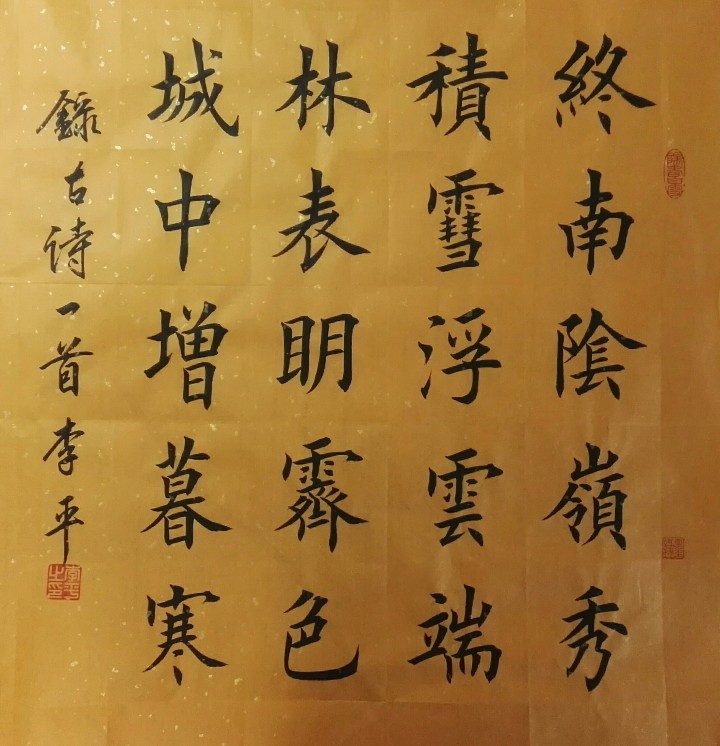 終南陰嶺秀
積雪浮雲端
林表明霽色
城中增暮寒
錄古诗一首李平